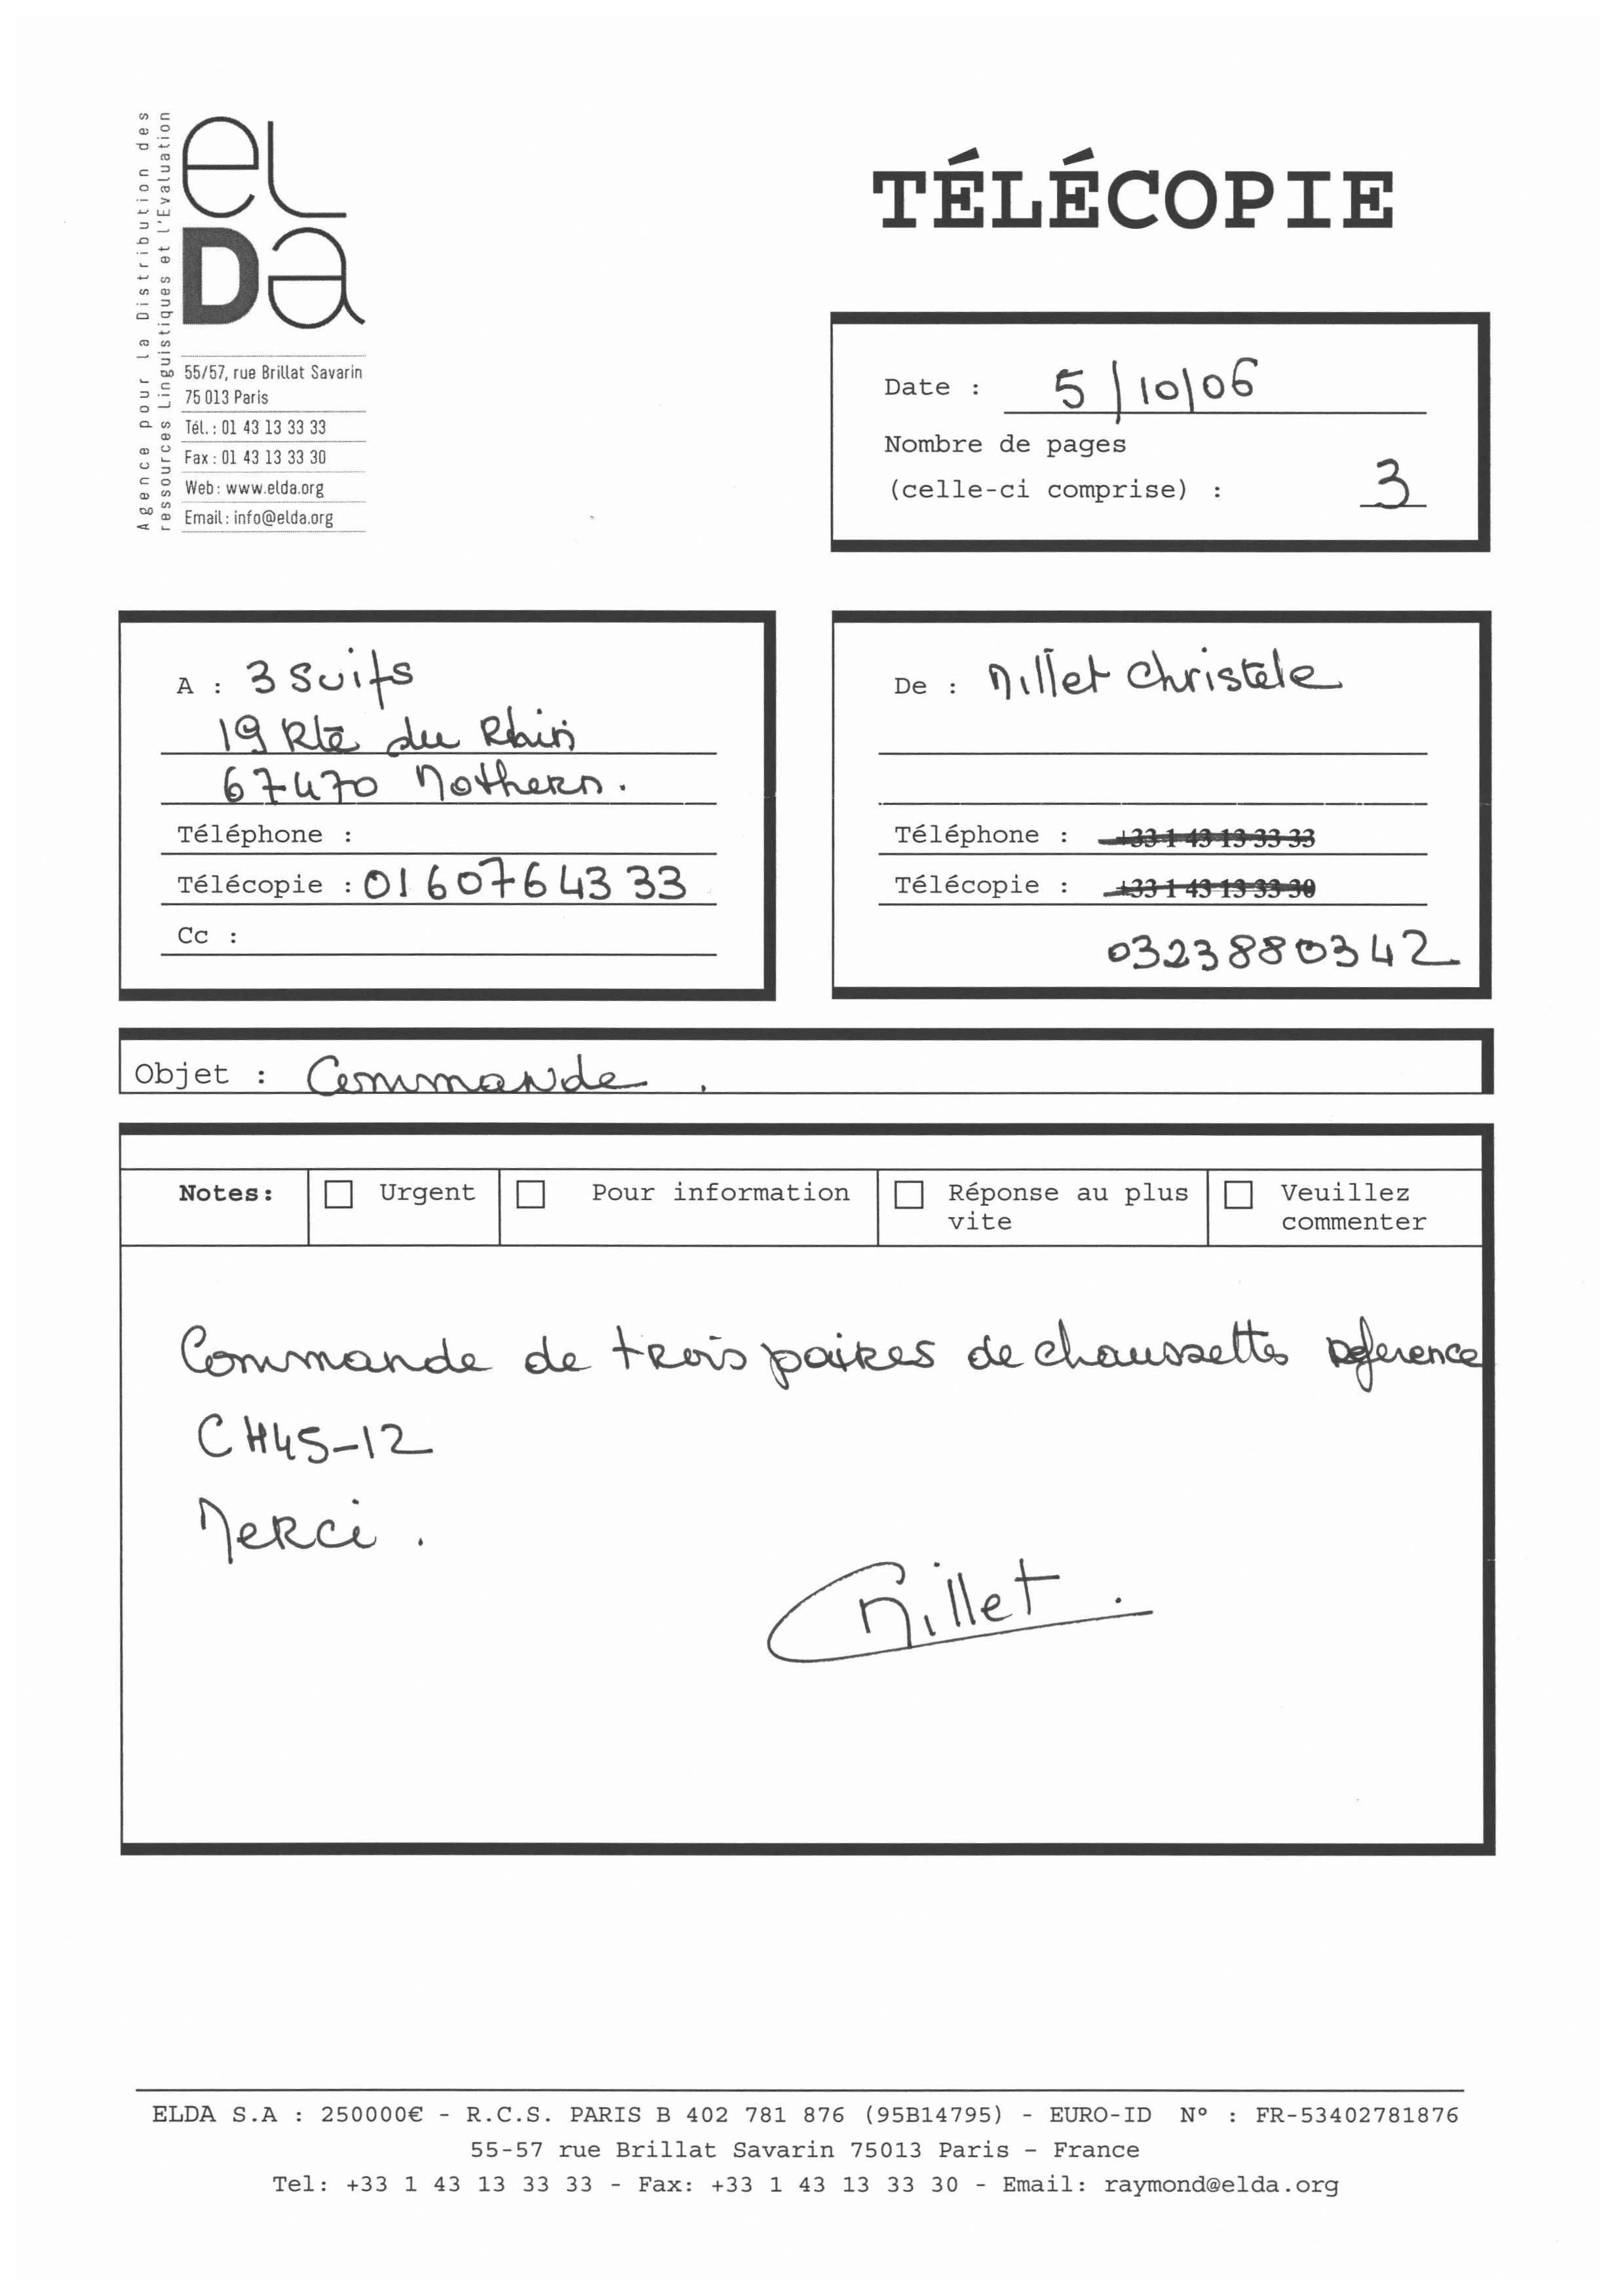 Agence pour la Distribution des
ressources Linguistiques et l'Evaluation
eL
Da
55/57, rue Brillat Savarin
75 013 Paris
Tél. : 01 43 13 33 33
Fax : 01 43 13 33 30
Web : www.elda.org
Email : info@elda.org
TÉLÉCOPIE
Date : 5/10/06
Nombre de pages
(celle-ci comprise) : 3
A : 3 Suifs
19 Rte du Rhin
67470 Mothern.
Téléphone :
Télécopie : 0160764333
Cc :
De : Millet Christele
Téléphone : +33 1 43 13 33 33
Télécopie : +33 1 43 13 33 30
0323880342
Objet : Commande .
Notes: Urgent Pour information Réponse au plus vite Veuillez commenter
Commande de trois paires de chaussettes reference
CH45-12
Merci .
Millet .
ELDA S.A : 250000€ - R.C.S. PARIS B 402 781 876 (95B14795) - EURO-ID N° : FR-53402781876
55-57 rue Brillat Savarin 75013 Paris – France
Tel: +33 1 43 13 33 33 - Fax: +33 1 43 13 33 30 - Email: raymond@elda.org